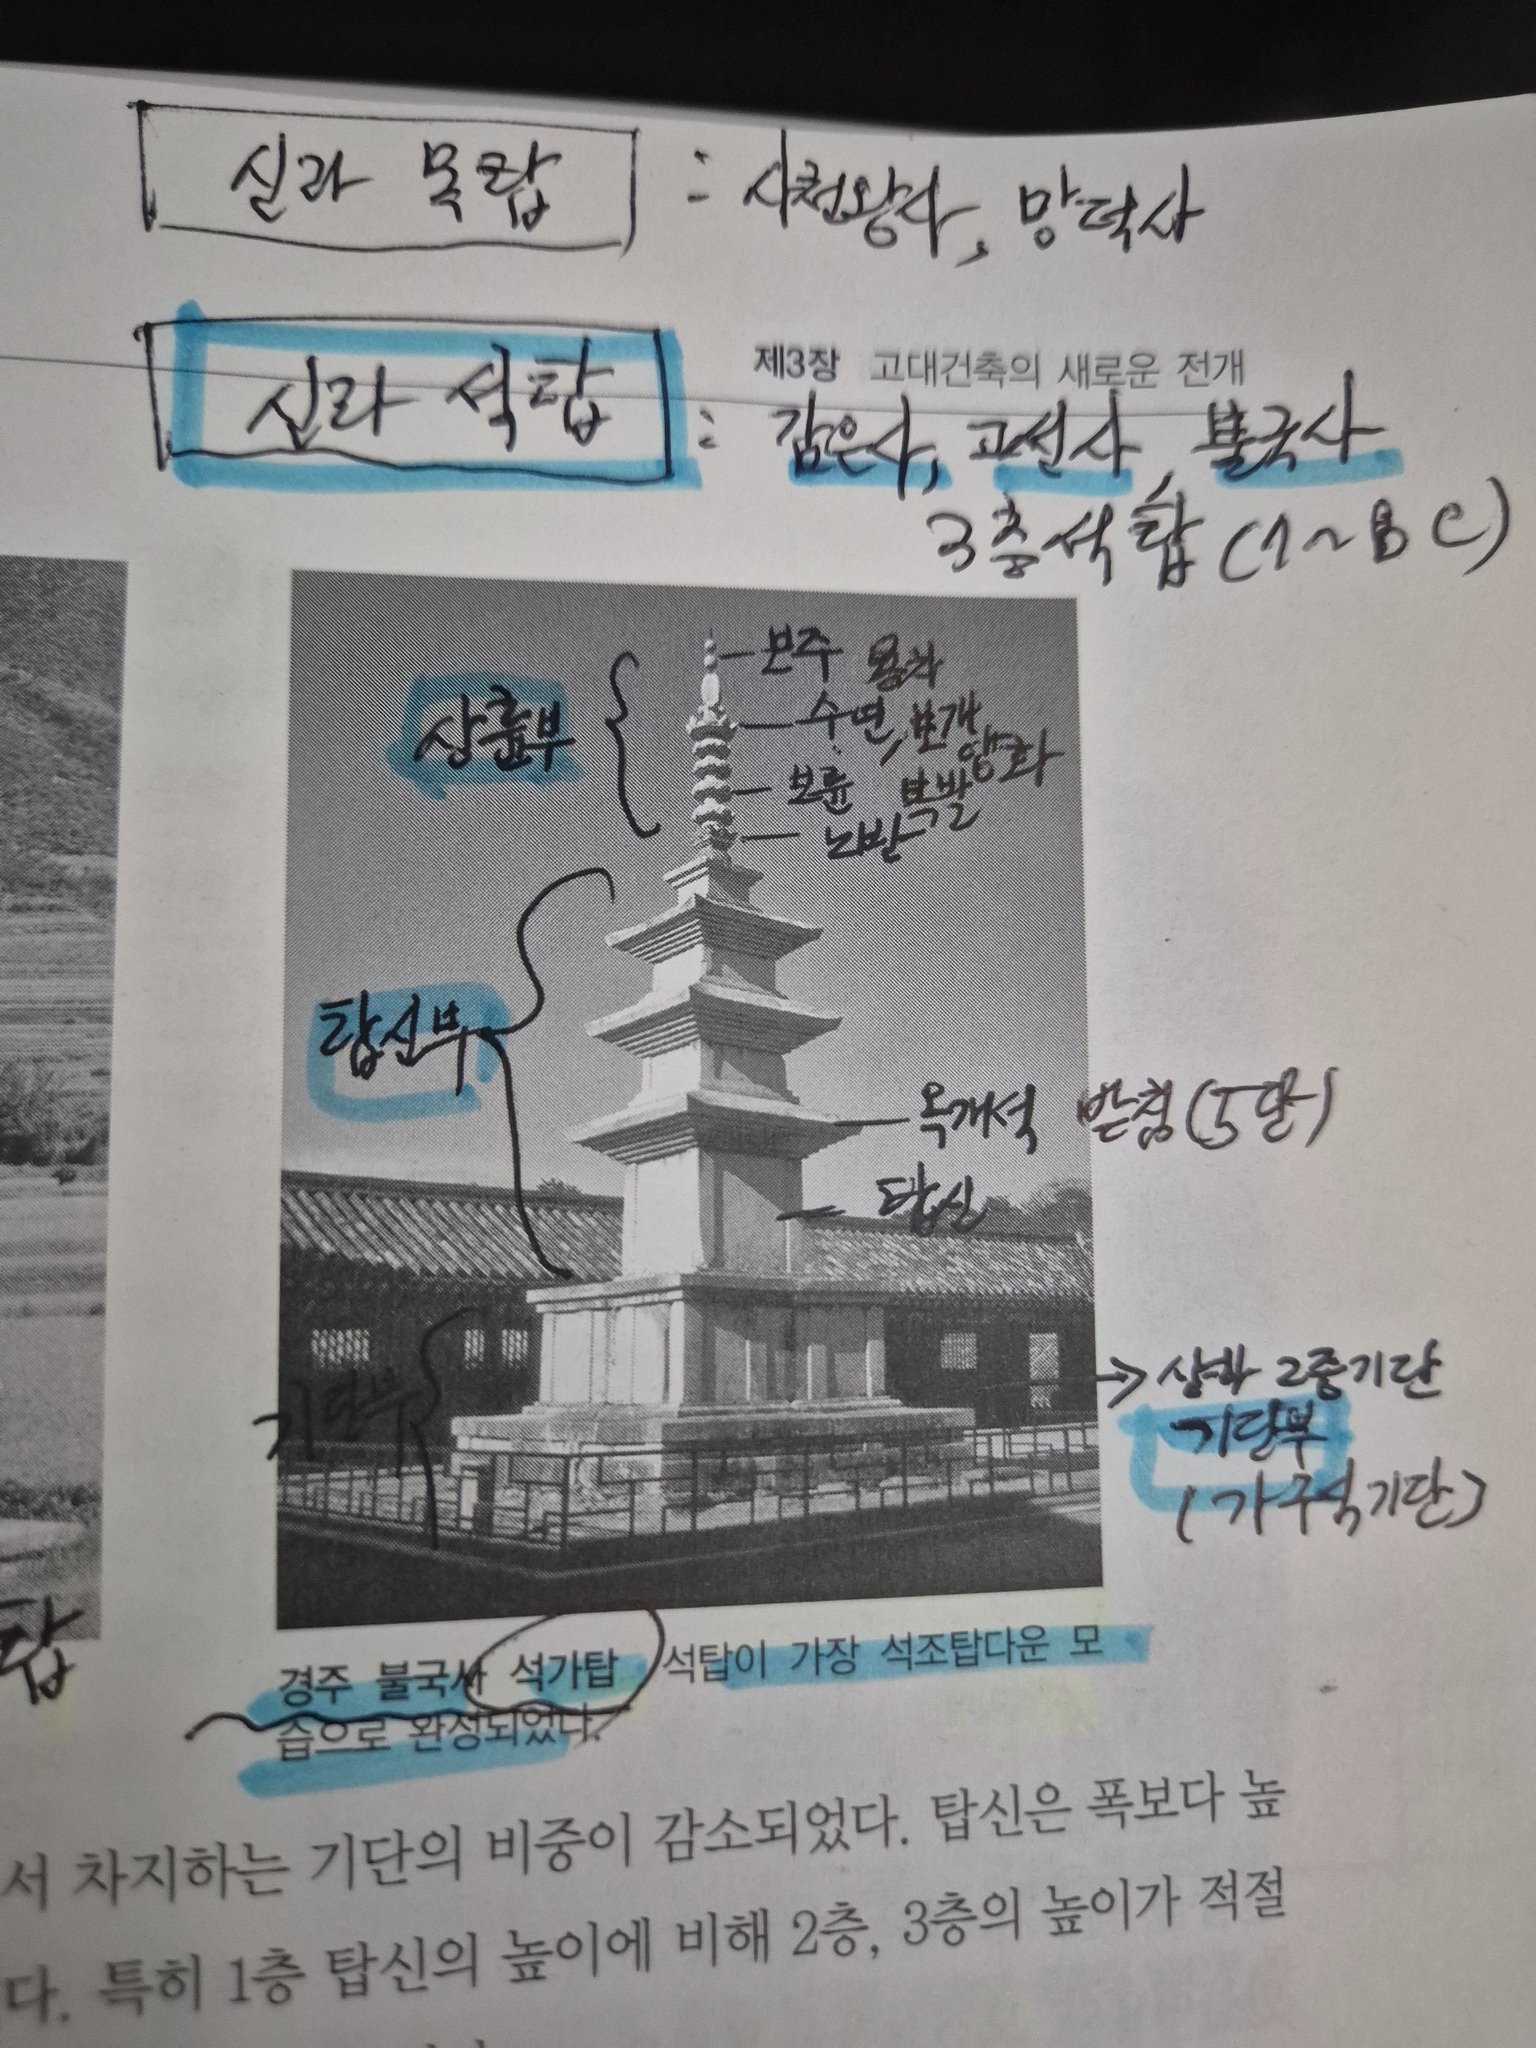 실라 목탑 : 사천왕사, 망덕사
제3장 고대건축의 새로운 전개
실라 석탑 : 감은사, 고선사, 불국사
3층석탑 (7~8C)
상륜부
보주 용차
수연, 보개
앙화
보륜 복발
노반
탑신부
옥개석 받침(5단)
탑신
기단부
→ 상하 2중기단
기단부
(가구석기단)
탑
경주 불국사 석가탑 석탑이 가장 석조탑다운 모
습으로 완성되었다.
서 차지하는 기단의 비중이 감소되었다. 탑신은 폭보다 높
다. 특히 1층 탑신의 높이에 비해 2층, 3층의 높이가 적절